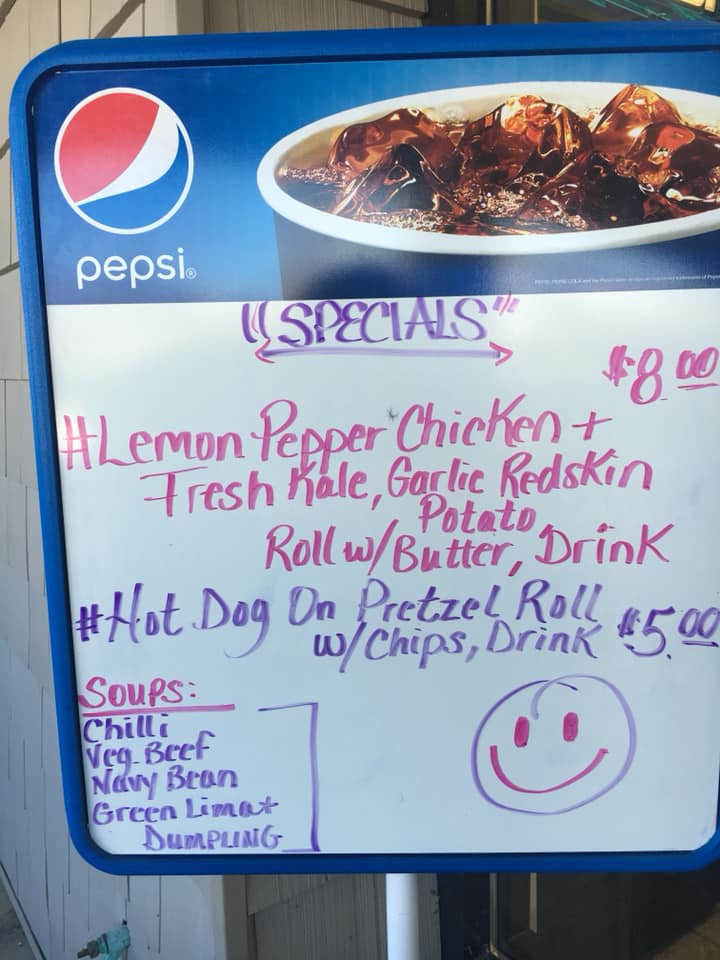 pepsi®
"SPECIALS"
$8.00
#Lemon Pepper Chicken +
Fresh Kale, Garlic Redskin
Potato,
Roll w/Butter, Drink
#Hot Dog On Pretzel Roll
w/Chips, Drink $5.00
Soups:
Chilli
Veg. Beef
Navy Bean
Green Lima +
DUMPLING